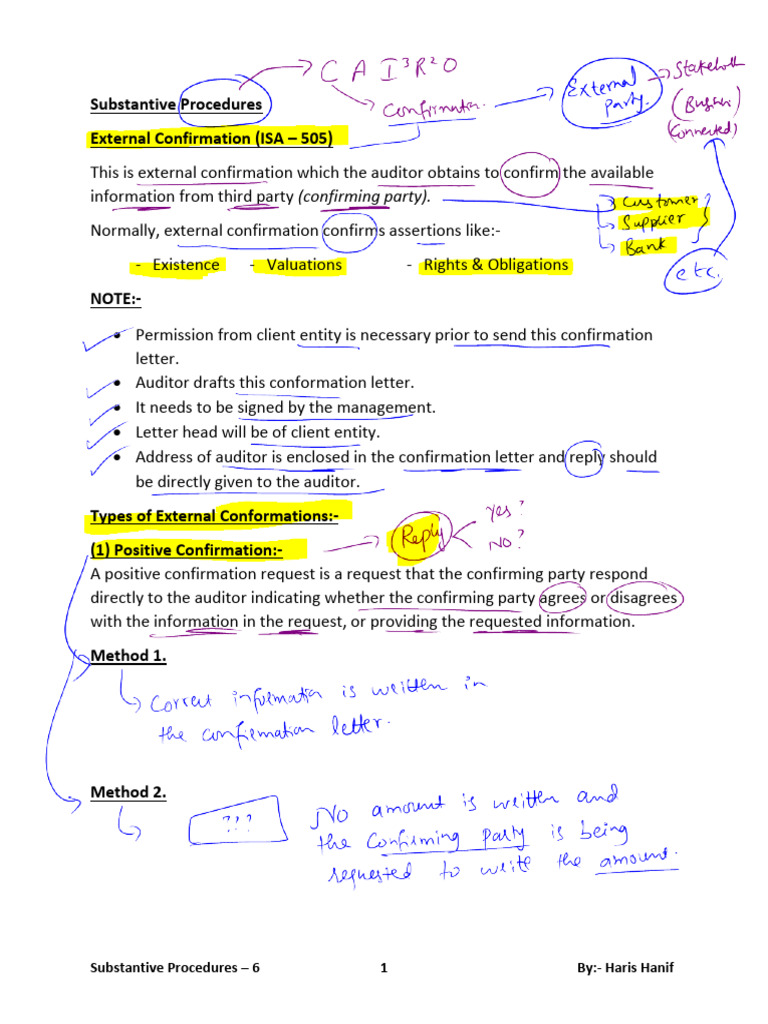 C A I³R²O
Confirmation.
External
party.
Stakeholder
(Business)
(Connected)
Substantive Procedures
External Confirmation (ISA – 505)
This is external confirmation which the auditor obtains to confirm the available
information from third party (confirming party).
Customer
Supplier
Bank
etc.
Normally, external confirmation confirms assertions like:-
- Existence - Valuations - Rights & Obligations
NOTE:-
• Permission from client entity is necessary prior to send this confirmation
letter.
• Auditor drafts this conformation letter.
• It needs to be signed by the management.
• Letter head will be of client entity.
• Address of auditor is enclosed in the confirmation letter and reply should
be directly given to the auditor.
Types of External Conformations:-
(1) Positive Confirmation:-
Reply
Yes?
No?
A positive confirmation request is a request that the confirming party respond
directly to the auditor indicating whether the confirming party agrees or disagrees
with the information in the request, or providing the requested information.
Method 1.
Correct information is written in
the confirmation letter.
Method 2.
???
No amount is written and
the Confirming party is being
requested to write the amount.
Substantive Procedures – 6 1 By:- Haris Hanif